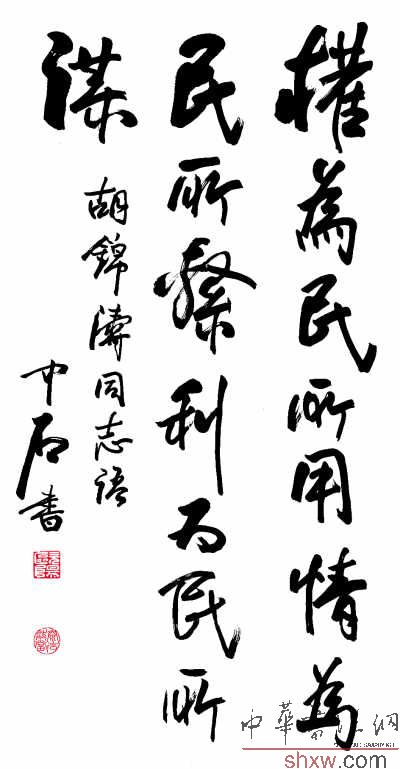 權為民所用情為
民所繫利為民所
謀
胡錦濤同志語
中石書
中華書法網
shxw.com